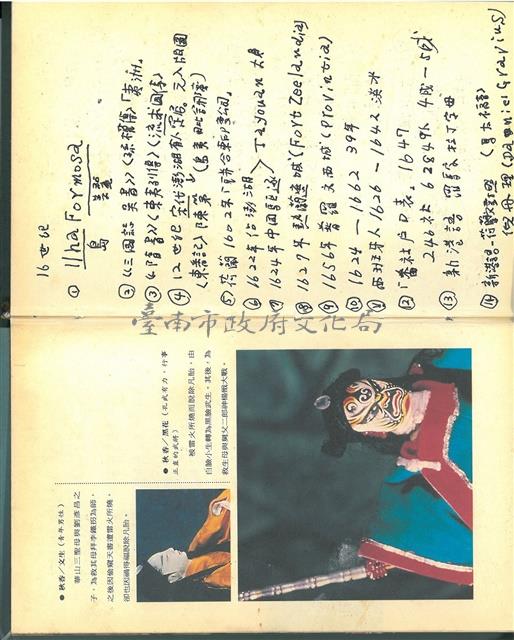 16世紀
① Ilha Formosa
島
② 《三國誌 吳書》《孫權傳》「夷洲」
③ 《隋書》《東夷列傳》《流求國傳》
④ 12世紀 宋作澎湖
《東番記》陳第
⑤ 荷蘭 1602年
⑥ 1622年佔澎湖
⑦ 1624年中國驅逐 > Tayouan 大員
⑧ 1627年 熱蘭遮城 (Fort Zeelandia)
⑨ 1656年 普羅 (Provintia)
⑩ 1624 — 1662 39年
⑪ 西班牙人 1626 — 1642 淡水
⑫ 番社戶口表。1647
246社 62849人
⑬ 新港語
⑭ 新港語 (馬太福音)
倪但理 (Daniel Gravius)
臺南市政府文化局
●秋香/文生(青年男性)
華山三聖母與劉彥昌之
子,為救其母拜李鐵拐為師,
之後因偷竊天書遭雷火所燒,
卻也因禍得福脫除凡胎。
●秋香/黑花(孔武有力,行事
正直的武將)
被雷火所燒而脫除凡胎,由
白臉小生轉為黑臉武生。其後,為
救生母與舅父二郎神楊戩大戰。